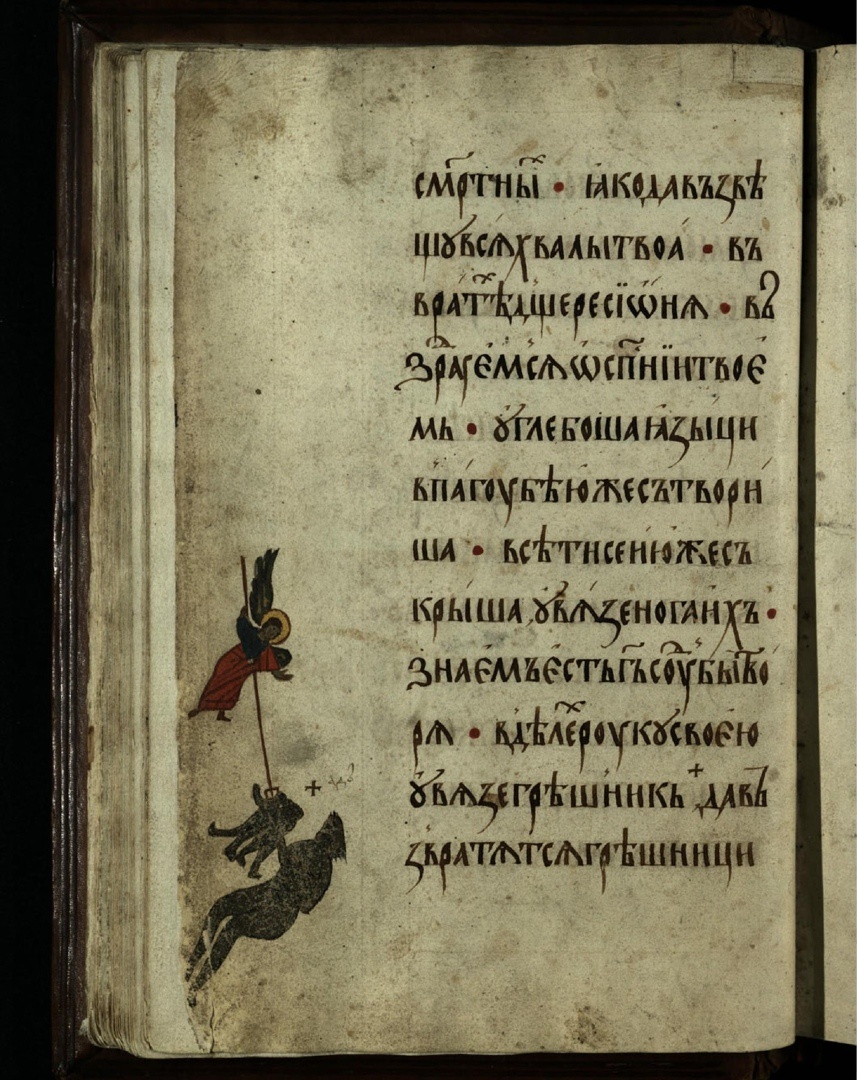 см҃ртны҃ · ꙗкодавъзвѣ
щꙋвсѧхвалытвоа · въ
врате҃хъдщересїѡнѧ · въ
зра҃дꙋемсѧѡсп҃нїитвоє
мь · ꙋглебошаꙗзыци
впагоубѣюжесътвори
ша · всѣтисеиюжесъ
крышаꙋвѧзеногаихъ ·
знаємъєстьг҃ьсоу҃бытво
рѧ · вдѣле҃роукꙋсвоєю
ꙋвѧзегрѣшникь + давъ
звратѧтсѧгрѣшници
+